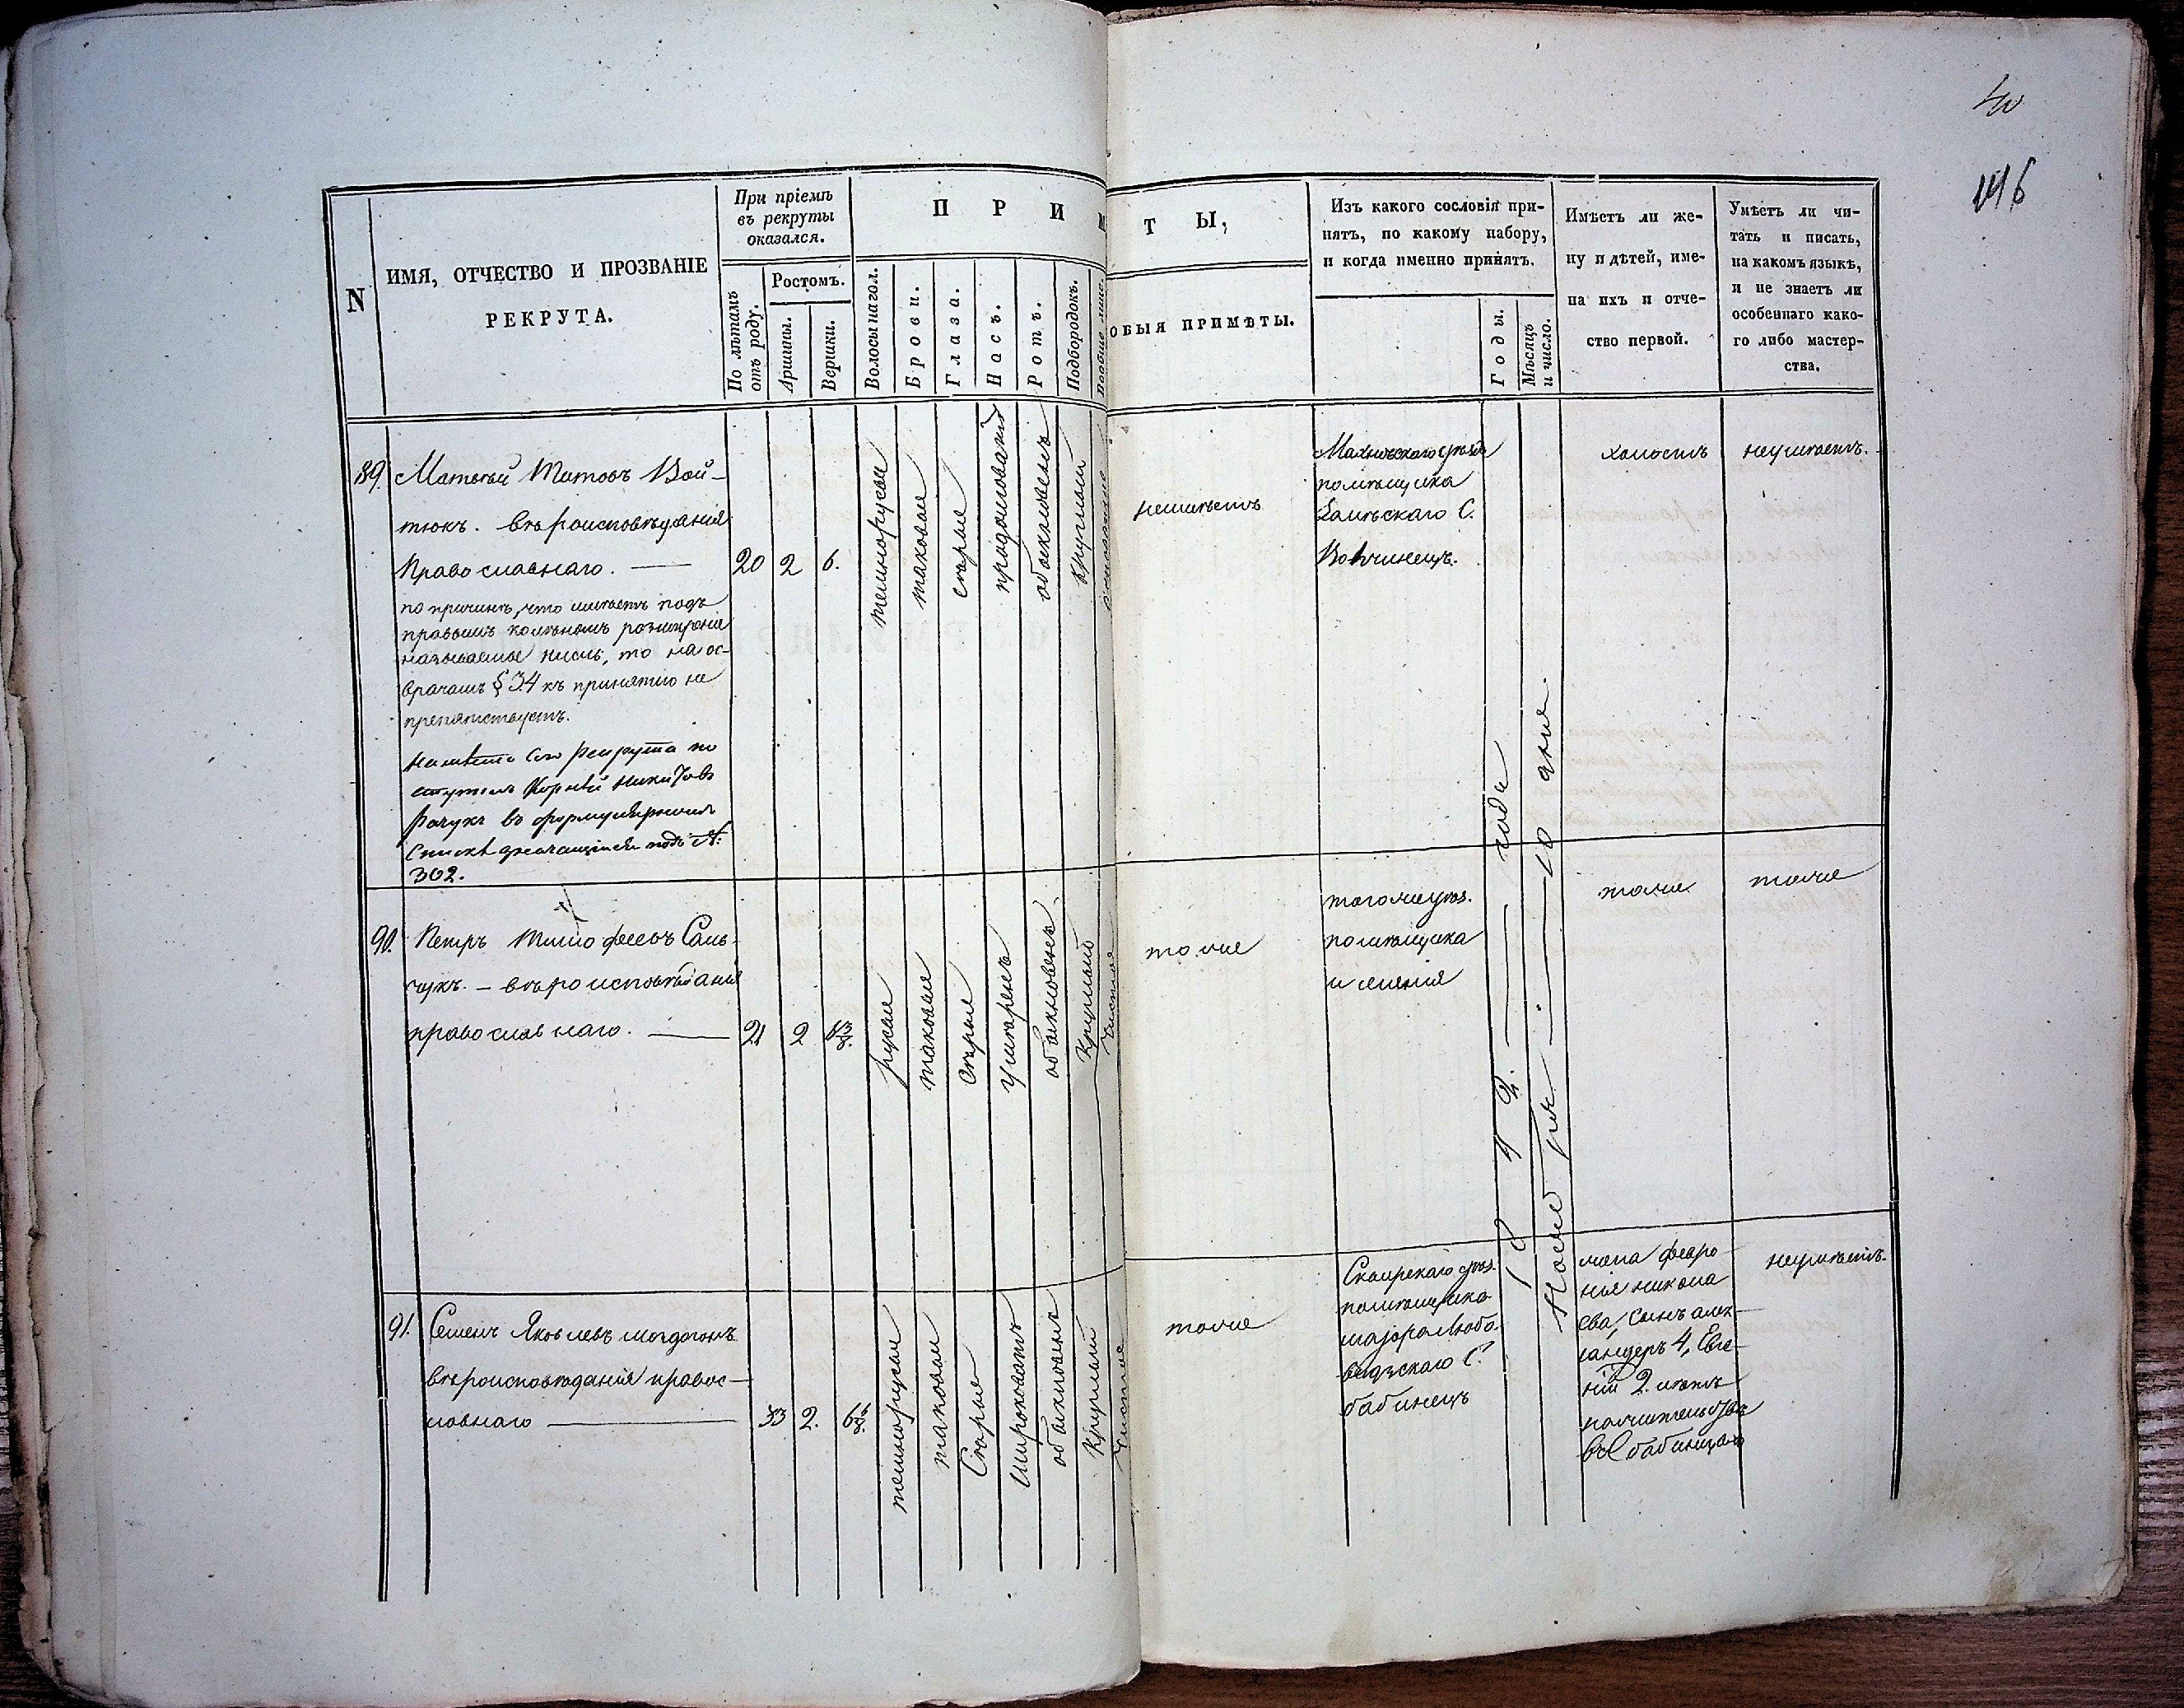 40
146
N
ИМЯ, ОТЧЕСТВО И ПРОЗВАНІЕ
РЕКРУТА.
При пріемѣ
въ рекруты
оказался.
По лѣтамъ
отъ роду.
Ростомъ.
Аршины.
Вершки.
П Р И М
Т Ы,
Волосы на гол.
Брови.
Глаза.
Носъ.
Ротъ.
Подбородокъ.
Вообще лице.
ОБЫЯ ПРИМѢТЫ.
Изъ какого сословія при-
нятъ, по какому набору,
и когда именно принятъ.
Годы.
Мѣсяцъ
и число.
Имѣетъ ли же-
ну и дѣтей, име-
на ихъ и отче-
ство первой.
Умѣетъ ли чи-
тать и писать,
на какомъ языкѣ,
и не знаетъ ли
особеннаго како-
го либо мастер-
ства.
89.
Матвѣй Титовъ Вой-
тюкъ. вѣроисповѣданія
Православнаго.
по причинѣ, что имѣетъ подъ
правымъ колѣномъ розширеніе
называемое то на ос-
врачамъ § 34 къ принятию не
препятствуетъ.
На мѣсто сего рекрута по
ступилъ Корнѣй Никитовъ
въ формулярномъ
Спискѣ подъ №.
302.
20
2
6.
темнорусыи
таковыи
серыи
продолговатый
обыкновенъ
Круглый
неимѣетъ
Махновскаго уѣзда
помѣщика
Залѣскаго С.
Вовчинецъ.
холостъ
неумѣетъ.
90.
Петръ Тимофеевъ Саль-
чукъ. - вѣроисповѣданія
православнаго.
21
2
русыи
таковыи
Сѣрыи
Умѣренъ
обыкновенъ
Круглый
Чистое
тоже
тогоже уѣз.
помѣщика
и имѣнія
тоже
тоже
1842. года
Ноября 10 дня.
91.
Семенъ Яковлевъ
вѣроисповѣданія право-
славнаго
33
2.
темнорусыи
таковыи
Сѣрыи
Широковатъ
обыкновенъ
Круглый
Чистое
тоже
Сквирскаго уѣз.
помѣщика
маіора Любо-
видзскаго С.
бабинецъ
жена февро-
нія никола
ева, Сынъ алек-
сандеръ 4, Евге-
ній 2. лѣтъ
жительство
въ С бабинцахъ
неумѣетъ.